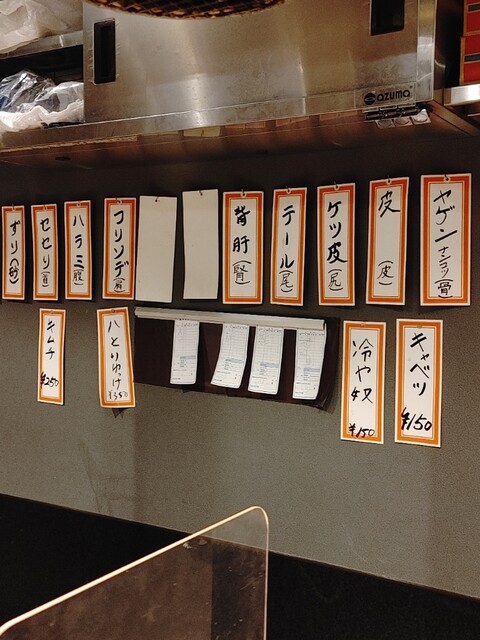 azuma
ヤゲンナンコツ(骨)
皮(皮)
ケツ皮(尻)
テール(尾)
背肝(腎)
コリソデ(肩)
ハラミ(腹)
セセリ(首)
ずり(砂)
キャベツ ¥150
冷ややっこ ¥150
ハとりゆっけ ¥350
キムチ ¥250